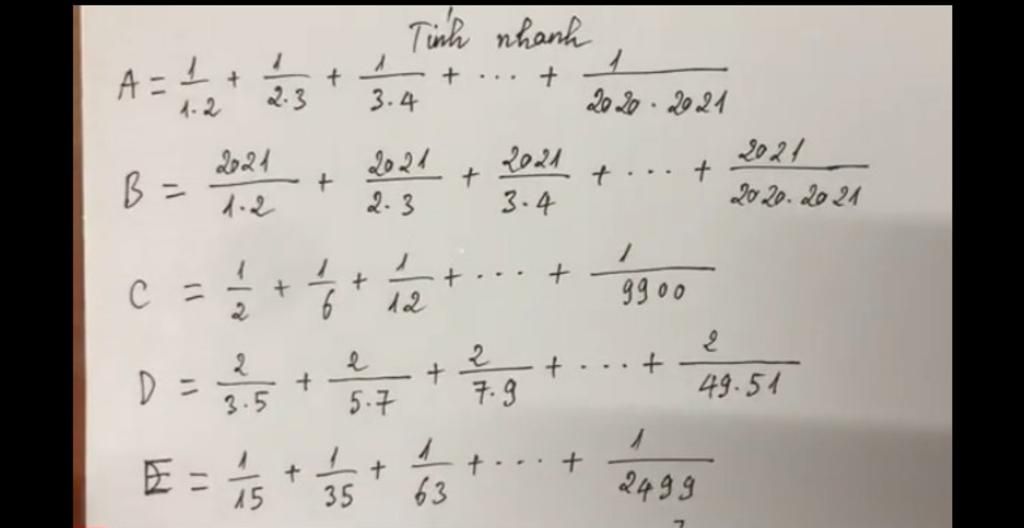 Tính nhanh
A = 1/1.2 + 1/2.3 + 1/3.4 + ... + 1/2020.2021
B = 2021/1.2 + 2021/2.3 + 2021/3.4 + ... + 2021/2020.2021
C = 1/2 + 1/6 + 1/12 + ... + 1/9900
D = 2/3.5 + 2/5.7 + 2/7.9 + ... + 2/49.51
E = 1/15 + 1/35 + 1/63 + ... + 1/2499